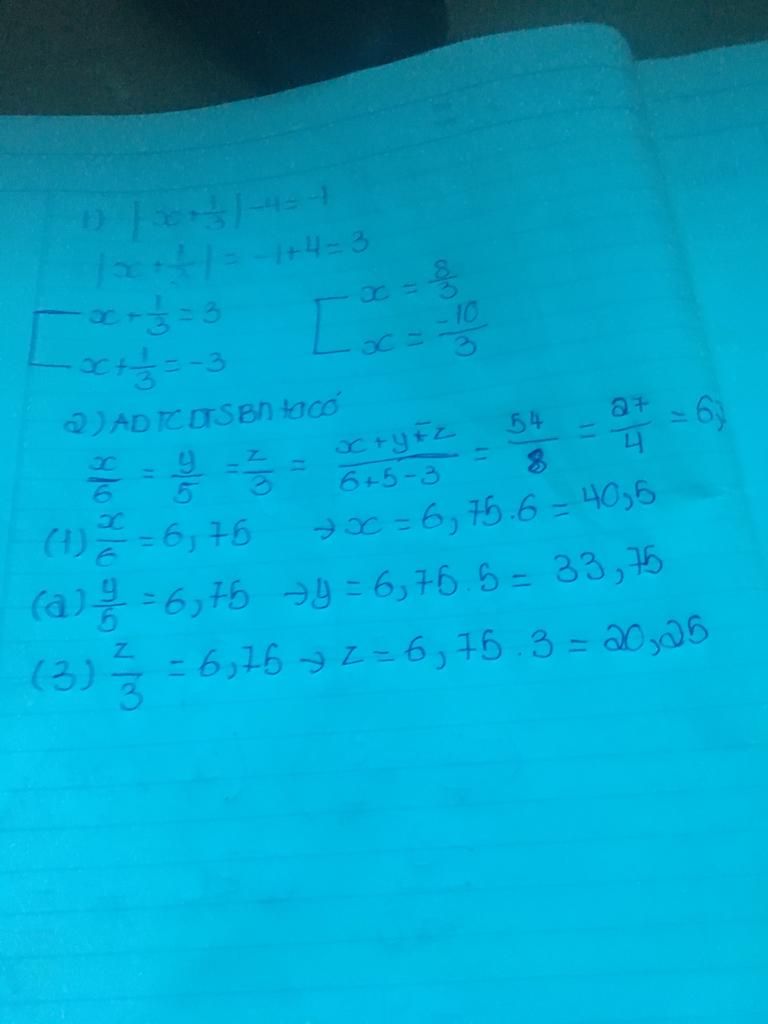 1) |x+1/3|-4=-1
|x+1/3|=-1+4=3
x+1/3=3 x=8/3
x+1/3=-3 x=-10/3
2) ADTCDTSBN ta có
x/6=y/5=z/3=x+y-z/6+5-3=54/8=27/4=6,
(1) x/6=6,75 →x=6,75.6=40,5
(2) y/5=6,75 →y=6,75.5=33,75
(3) z/3=6,75→z=6,75.3=20,25